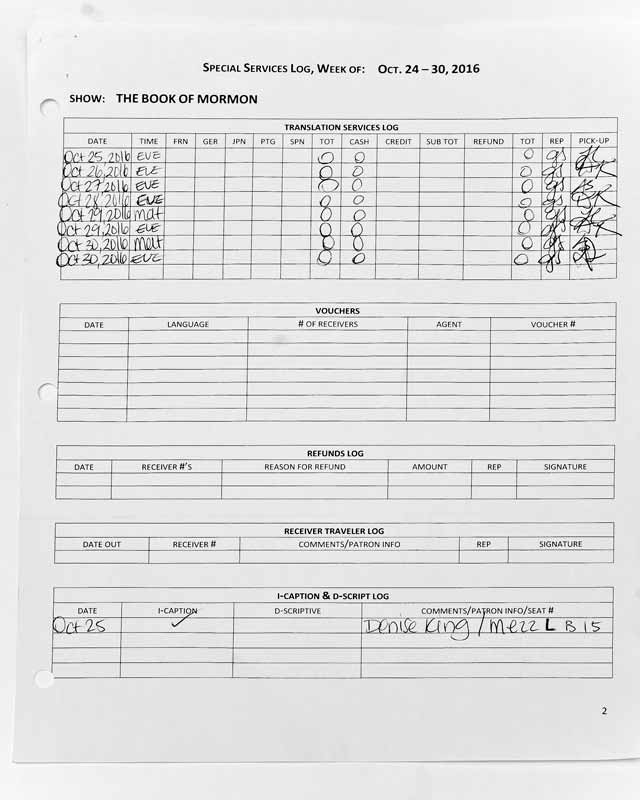 SPECIAL SERVICES LOG, WEEK OF: OCT. 24 – 30, 2016
SHOW: THE BOOK OF MORMON
TRANSLATION SERVICES LOG
DATE TIME FRN GER JPN PTG SPN TOT CASH CREDIT SUB TOT REFUND TOT REP PICK-UP
Oct 25, 2016 EVE 0 0 0 gs
Oct 26, 2016 EVE 0 0 0 gs
Oct 27, 2016 EVE 0 0 0 gs
Oct 28, 2016 EVE 0 0 0 gs
Oct 29, 2016 mat 0 0 0 gs
Oct 29, 2016 EVE 0 0 0 gs
Oct 30, 2016 Mat 0 0 0 gs
Oct 30, 2016 EVE 0 0 0 gs
VOUCHERS
DATE LANGUAGE # OF RECEIVERS AGENT VOUCHER #
REFUNDS LOG
DATE RECEIVER #'S REASON FOR REFUND AMOUNT REP SIGNATURE
RECEIVER TRAVELER LOG
DATE OUT RECEIVER # COMMENTS/PATRON INFO REP SIGNATURE
I-CAPTION & D-SCRIPT LOG
DATE I-CAPTION D-SCRIPTIVE COMMENTS/PATRON INFO/SEAT #
Oct 25 ✓ Denise King / Mezz L B 15
2